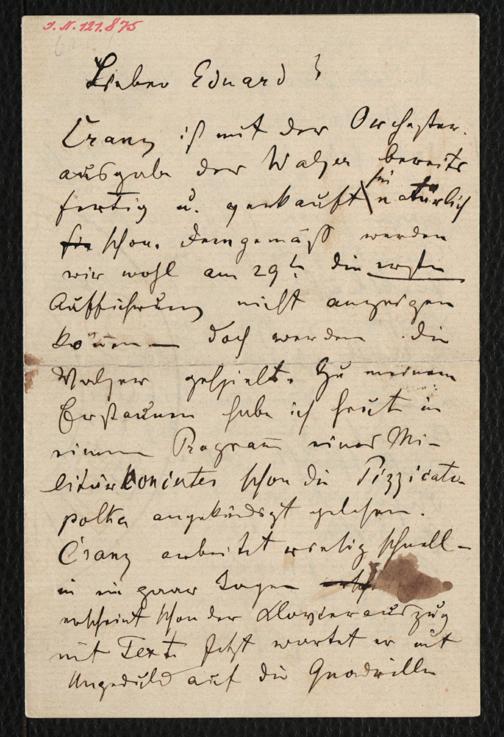 I. N. 121.875
Lieber Eduard!
Cranz ist mit der Orchester-
ausgabe der Walzer bereits
fertig u. verkauft sie natürlich
schon. Demgemäß werden
wir wohl am 29t die erste
Aufführung nicht anzeigen
können — doch werden die
Walzer gespielt. Zu meinem
Erstaunen habe ich heut in
einem Program eines Mi-
litärkonzertes schon die Pizzicato
polka angekündigt gelesen.
Cranz arbeitet riesig schnell —
in ein paar Tagen
erscheint schon der Klavierauszug
mit Text. Jetzt wartet er mit
Ungeduld auf die Quadrille